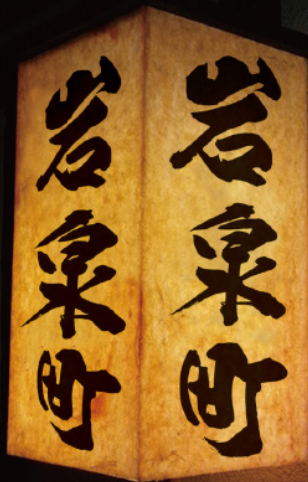 岩泉町
岩泉町